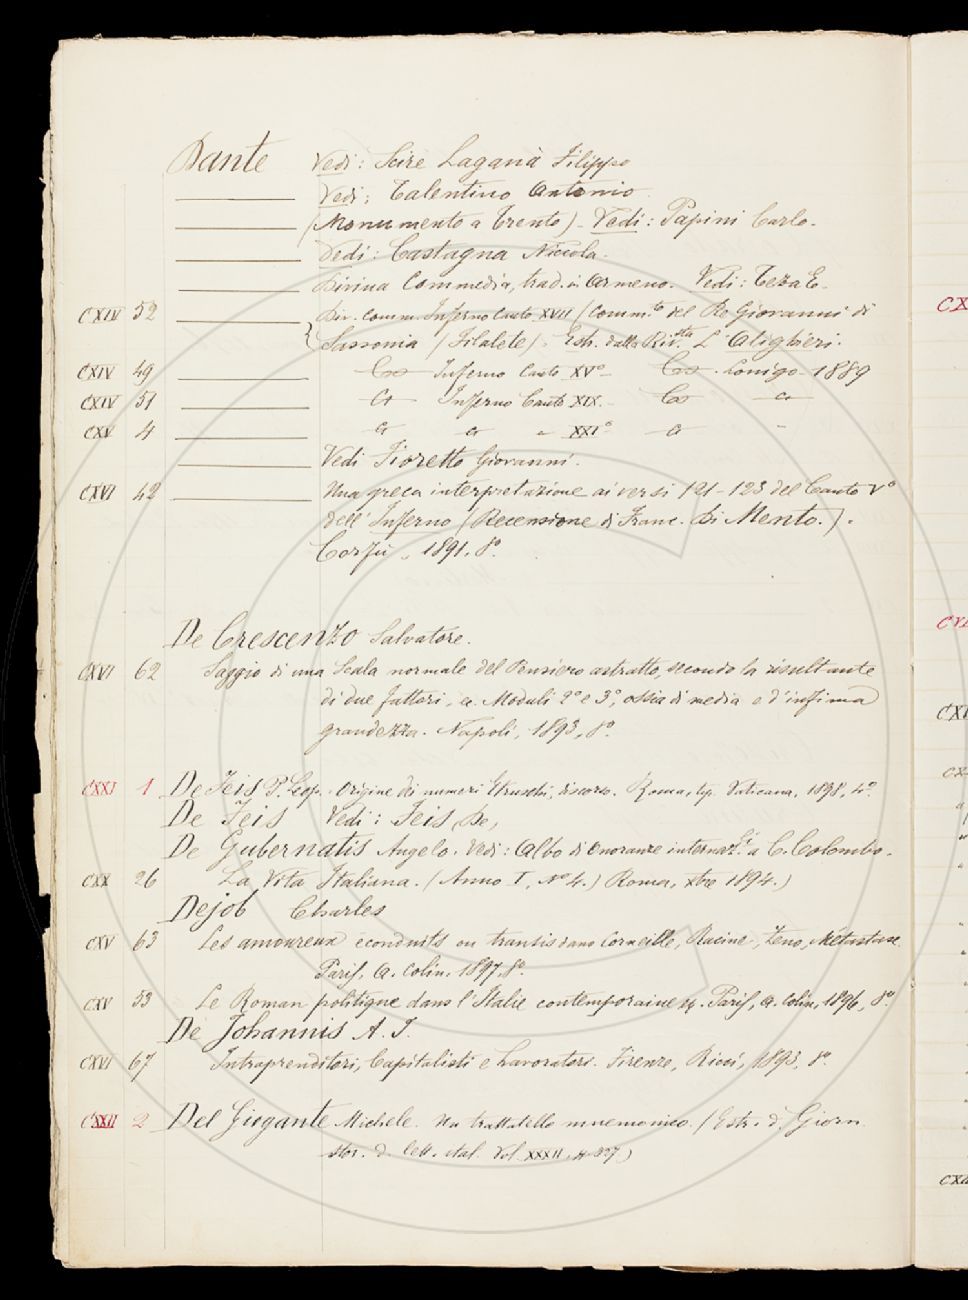 Dante Vedi: Scire Laganà Filippo
Vedi: Talentino Antonio
(Monumento a Trento) - Vedi: Papini Carlo.
Vedi: Castagna Niccola.
Divina Commedia, trad. in Armeno. Vedi: Teza E.
CXIV 52 Div. Comm. Inferno Canto XVII (Comm.to del Re Giovanni di
Sassonia (Filalete). Estr. dalla Riv.sta L'Alighieri.
CXIV 49 Inferno Canto XVo - Lonigo - 1889
CXIV 51 Inferno Canto XIX.
CXV 4 XXIo
Vedi Fioretto Giovanni.
CXVI 42 Una greca interpretazione ai versi 121-123 del Canto Vo
dell'Inferno (Recensione di Franc. Di Mento.).
Corfù, 1891. 8o.
De Crescenzo Salvatore.
CXVI 62 Saggio di una Scala normale del Pensiero astratto, secondo la risultante
di due fattori, Moduli 2o e 3o, ossia di media e d'infima
grandezza. Napoli, 1893, 8o.
CXXI 1 De Feis P. Leop. Origine dei numeri Etruschi, discorso. Roma, tip. Vaticana, 1898, 4o.
De Feis Vedi: Feis, De,
De Gubernatis Angelo. Vedi: Albo di Onoranze internaz.li a C. Colombo.
CXX 26 La Vita Italiana. (Anno I, No 4.) Roma, xbre 1894.)
Dejob Charles
CXV 63 Les amoureux éconduits ou transis dans Corneille, Racine, Zeno, Metastase
Paris, A. Colin. 1897, 8o.
CXV 53 Le Roman politique dans l'Italie contemporaine. Paris, A. Colin, 1896, 8o.
De Johannis A. J.
CXVI 67 Intraprenditori, Capitalisti e Lavoratori. Firenze, Ricci, 1893, 8o.
CXXII 2 Del Giugante Michele. Un trattatello mnemonico. (Estr. d. Giorn.
stor. d. lett. ital. Vol XXXII,
CX